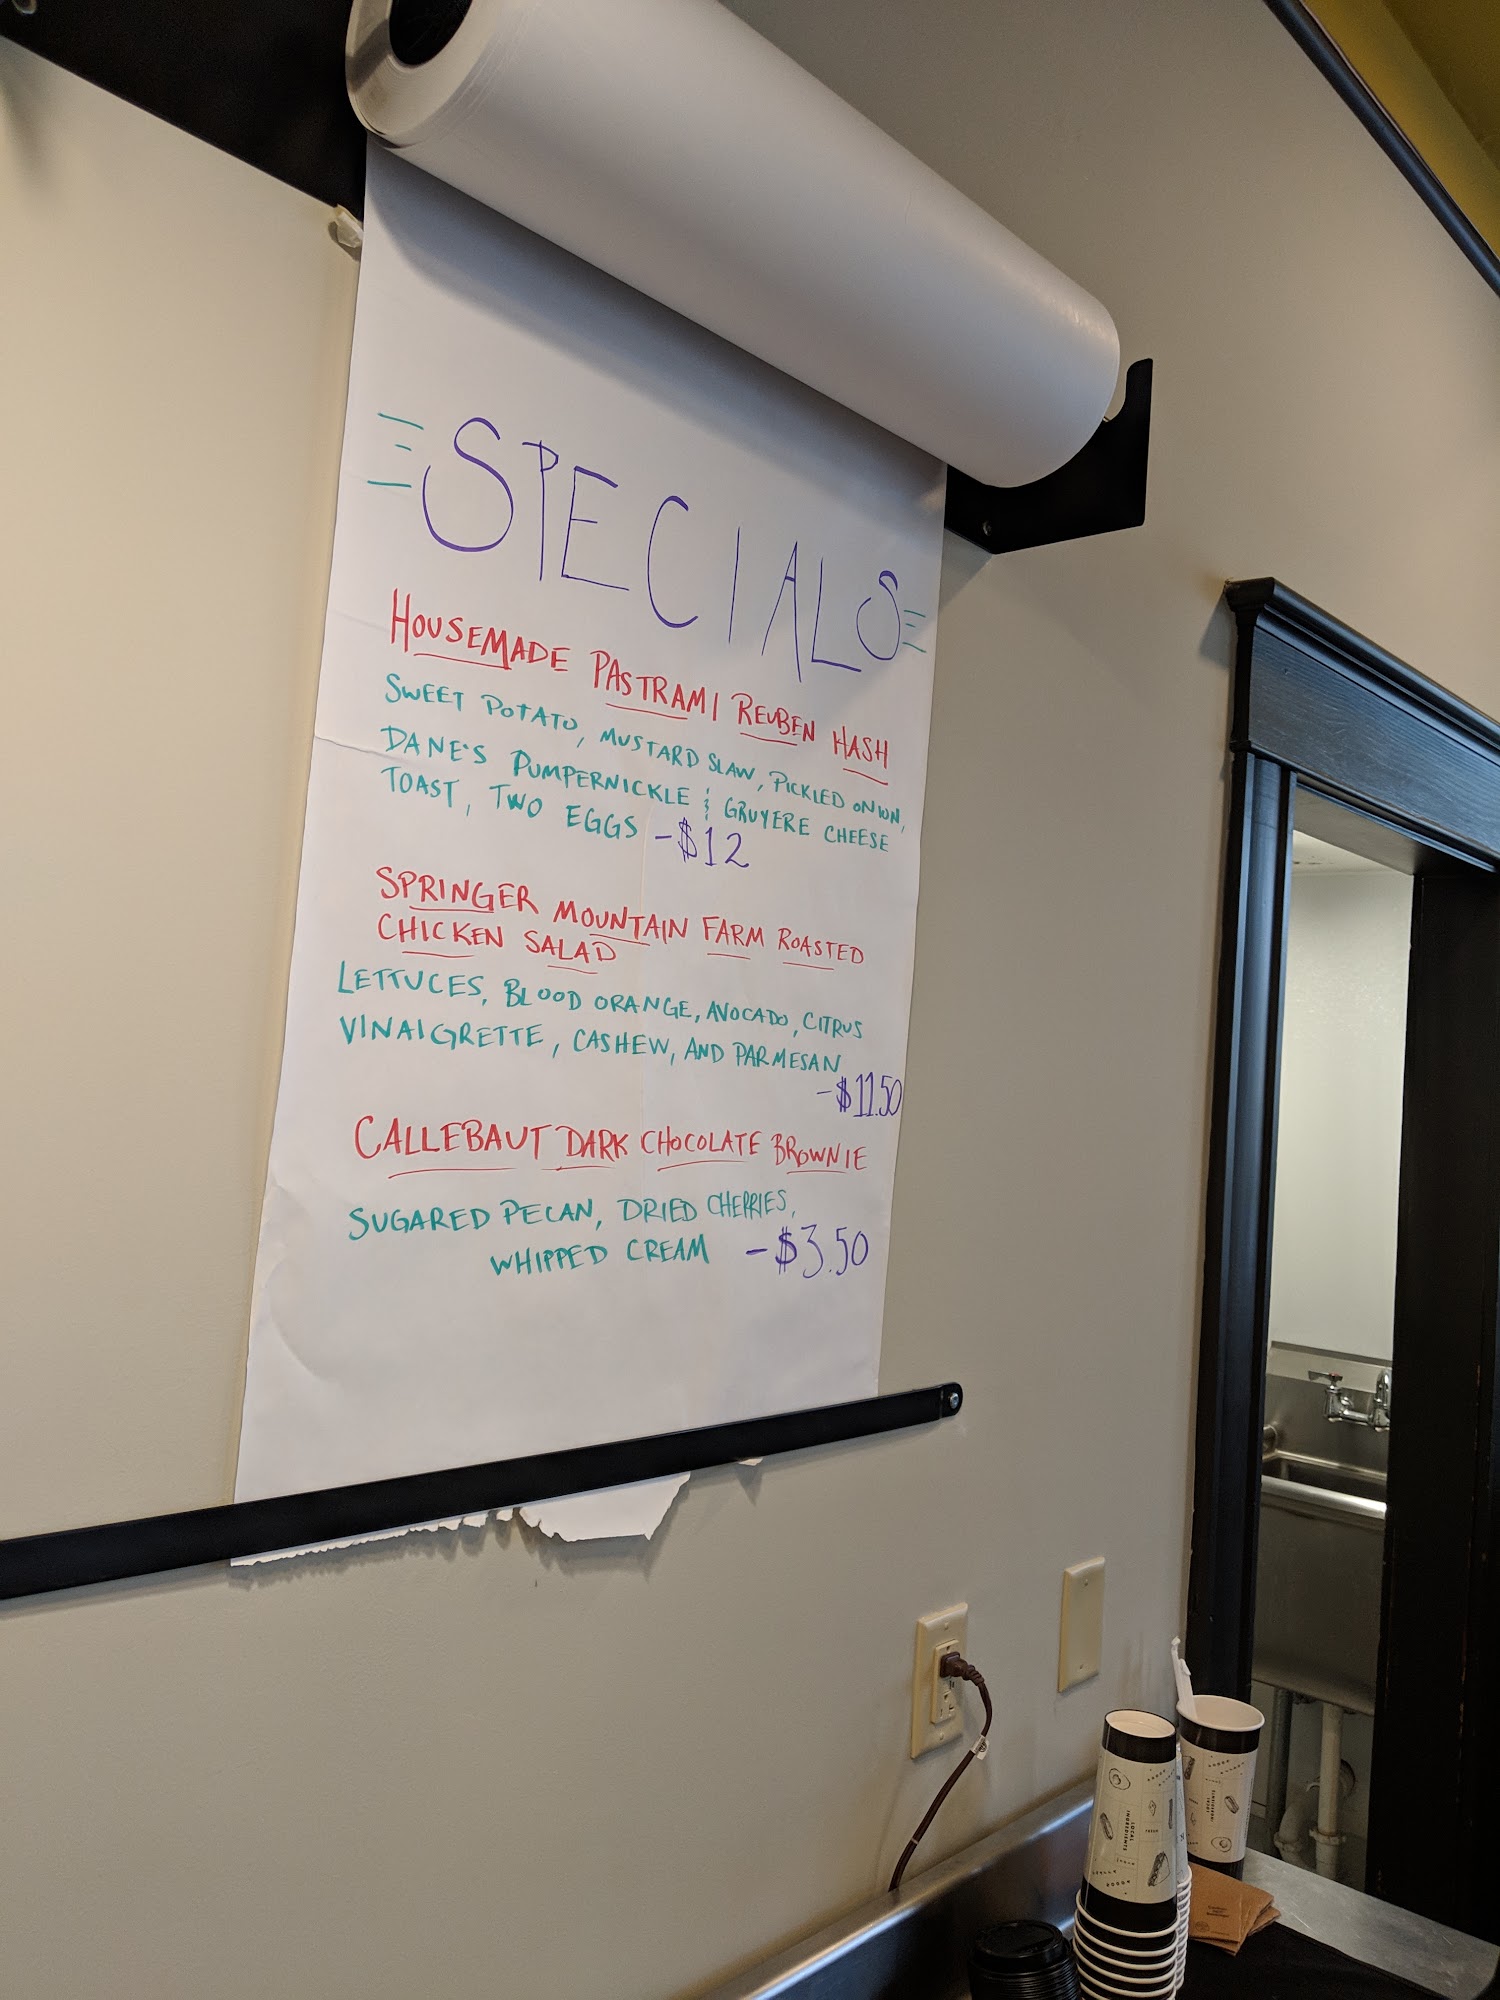 SPECIALS
HOUSEMADE PASTRAMI REUBEN HASH
SWEET POTATO, MUSTARD SLAW, PICKLED ONION,
DANE'S PUMPERNICKLE & GRUYERE CHEESE
TOAST, TWO EGGS -$12
SPRINGER MOUNTAIN FARM ROASTED
CHICKEN SALAD
LETTUCES, BLOOD ORANGE, AVOCADO, CITRUS
VINAIGRETTE, CASHEW, AND PARMESAN
-$11.50
CALLEBAUT DARK CHOCOLATE BROWNIE
SUGARED PECAN, DRIED CHERRIES,
WHIPPED CREAM -$3.50
LOCAL
INGREDIENTS